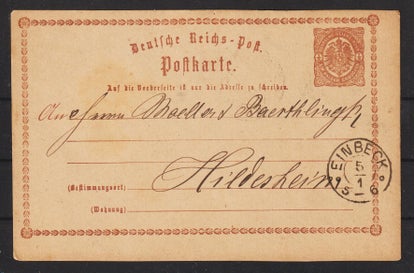 Deutsche Reichs-Post.
Postkarte.
Auf die Vorderseite ist nur die Adresse zu schreiben.
An Herrn Moeller & Baerthlingk
Hildesheim
EINBECK
5
1
5-6
(Bestimmungsort)
(Wohnung)